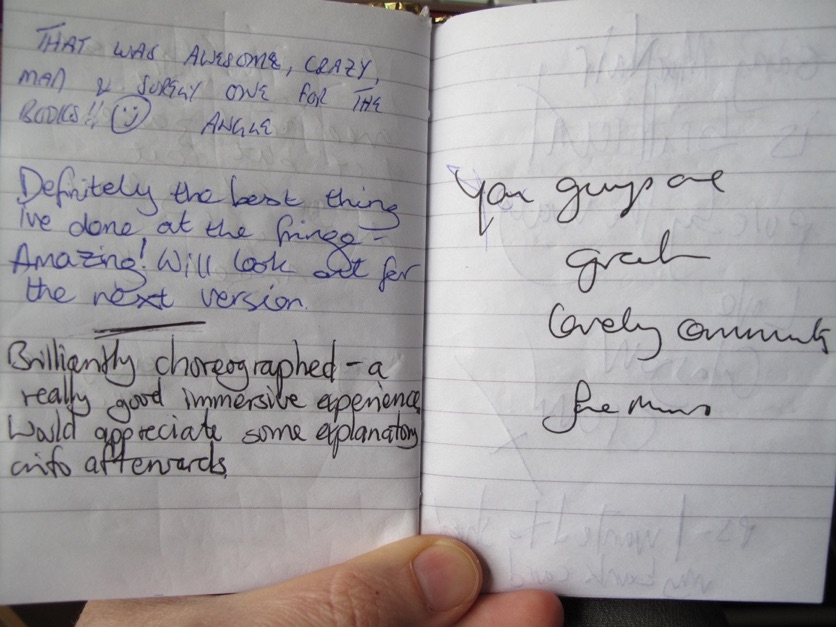 THAT WAS AWESOME, CRAZY,
MAD & SURELY ONE FOR THE
BOOKS!!
ANGLE
Definitely the best thing
i've done at the fringe -
Amazing! Will look out for
the next version.
Brilliantly choreographed - a
really good immersive experience
Would appreciate some explanatory
info afterwards
You guys are
great
Lovely community